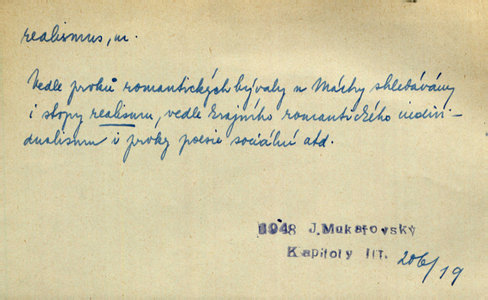 realismus, m.
Vedle prvků romantických bývaly u Máchy shledávány
i stopy realismu, vedle krajního romantického indivi-
dualismu i prvky poesie sociální atd.
1948 J.Mukařovský
Kapitoly III. 206/19